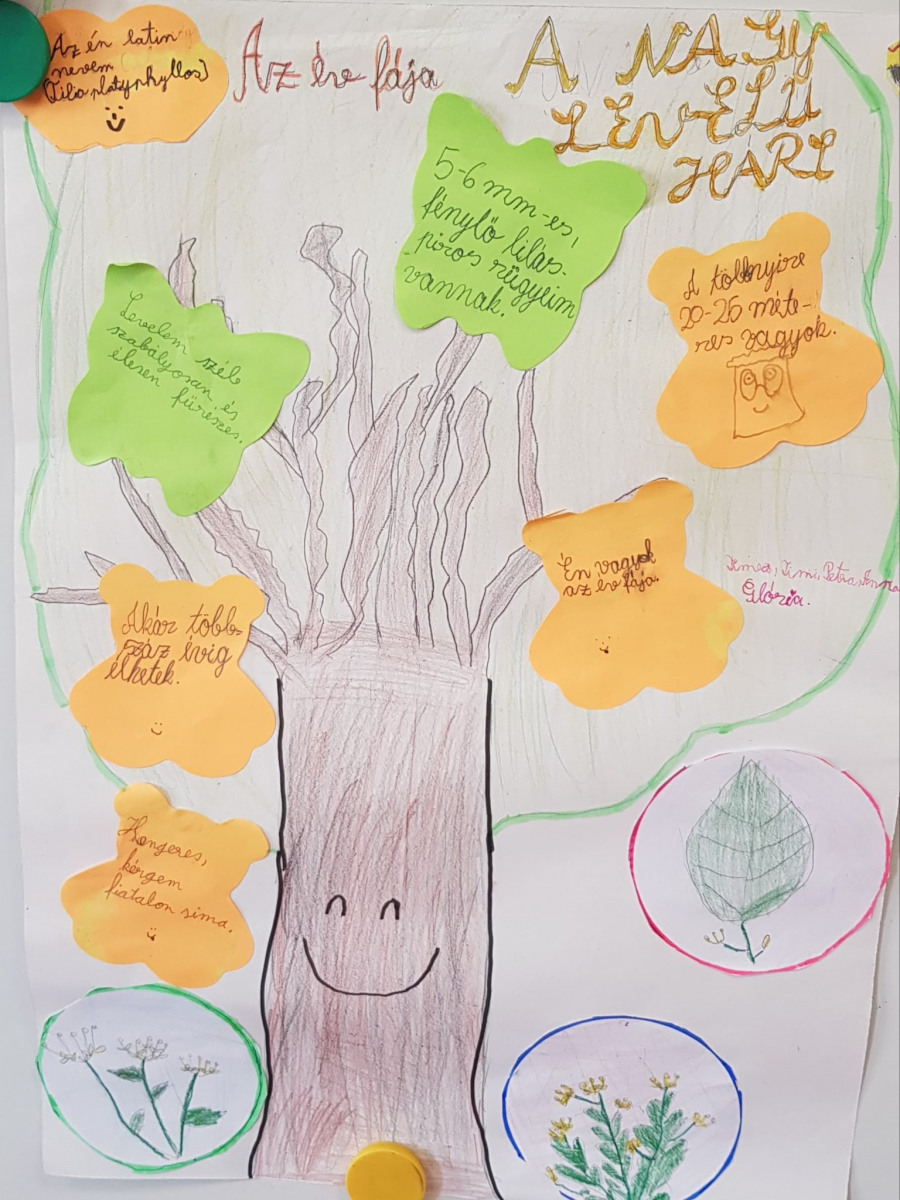 Az én latin
nevem
(Tilia platyphyllos)
Az év fája
A NAGY
LEVELŰ
HÁRS
5-6 mm-es,
fénylő lilás-
piros rügyeim
vannak.
A többnyire
20-25 méte-
res vagyok.
Levelem szél
szabályosan és
élesen fűrészes.
Én vagyok
az év fája.
Timi, Petra, Anna
Glória.
Akár több-
száz évig
élhetek.
Hengeres,
kérgem
fiatalon sima.